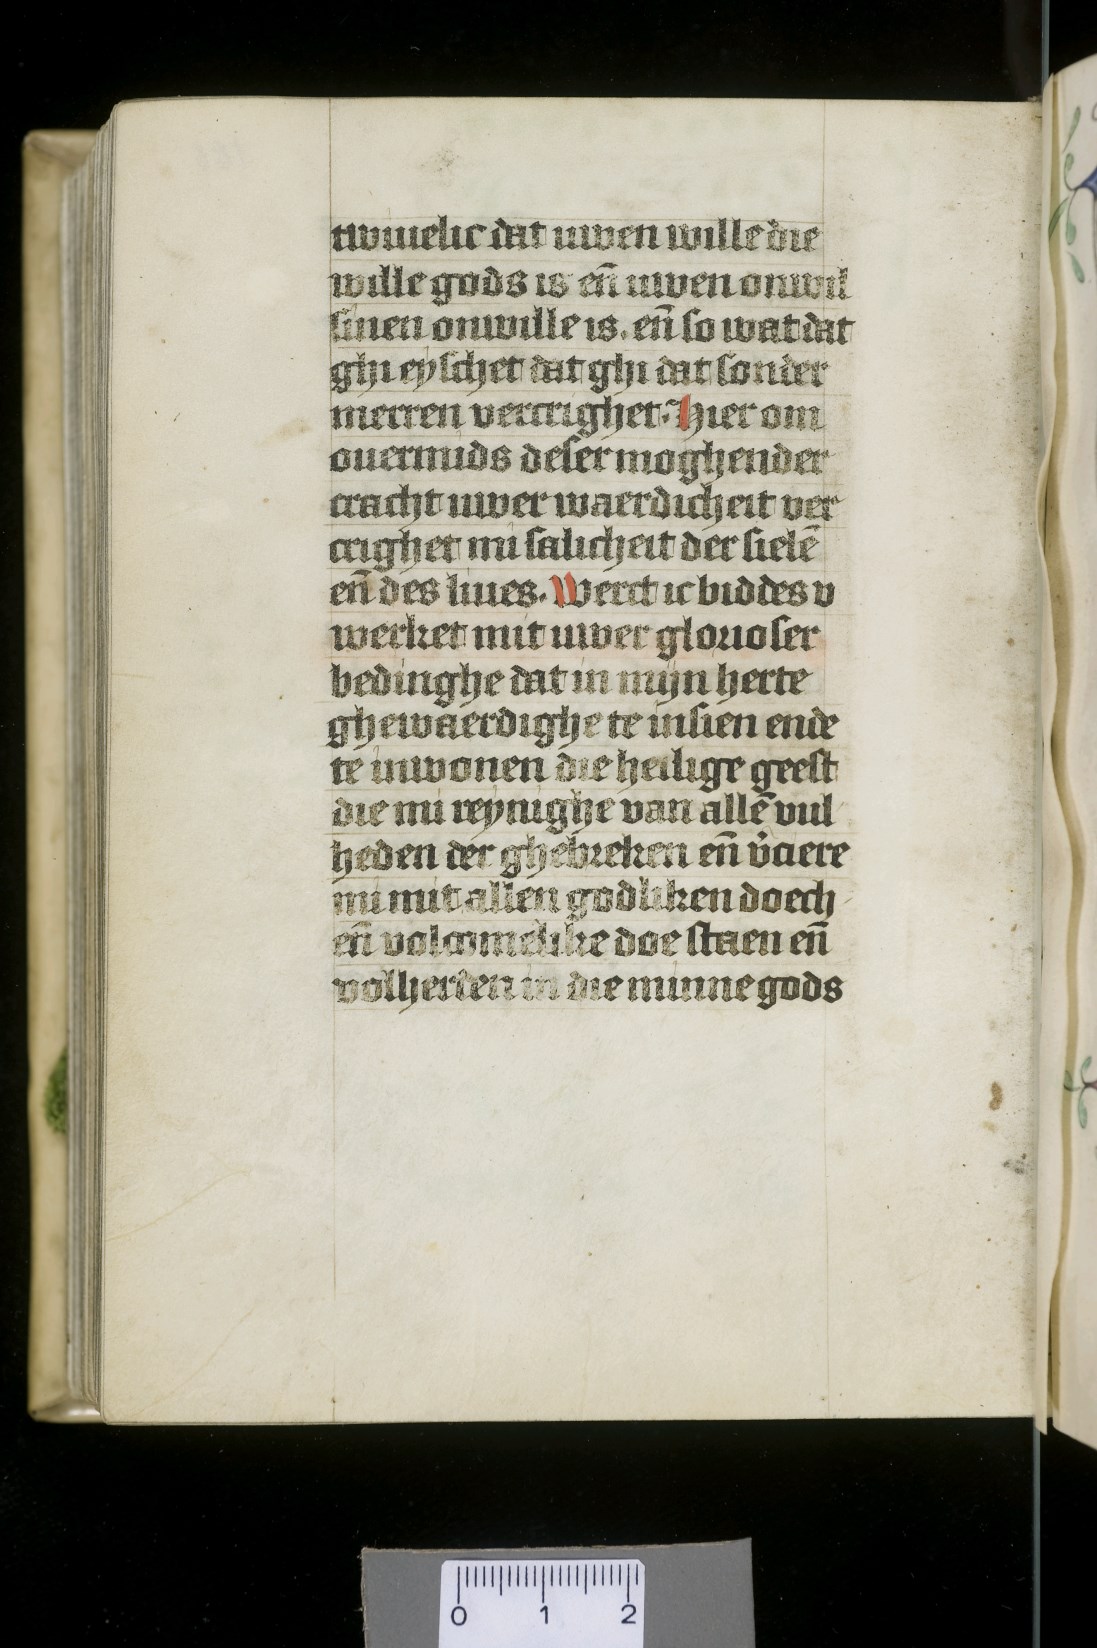 twiuelic dat uwen wille die
wille gods is en̄ uwen onwil
sinen onwille is. en̄ so wat dat
ghi eyschet dat ghi dat sonder
merren vercrighet. Hier om
ouermids deser moghender
cracht uwer waerdicheit ver
crighet mi salicheit der sielē
en̄ des liues. Werct ic biddes v
werket mit uwer glorioser
bedinghe dat in mijn herte
ghewaerdighe te insien ende
te inwonen die heilige geest
die mi reynighe van allē vul
heden der ghebreken en̄ v̉ciere
mi mit allen godliken doech
en̄ volcomelike doe staen en̄
volherden in die minne gods
0 1 2